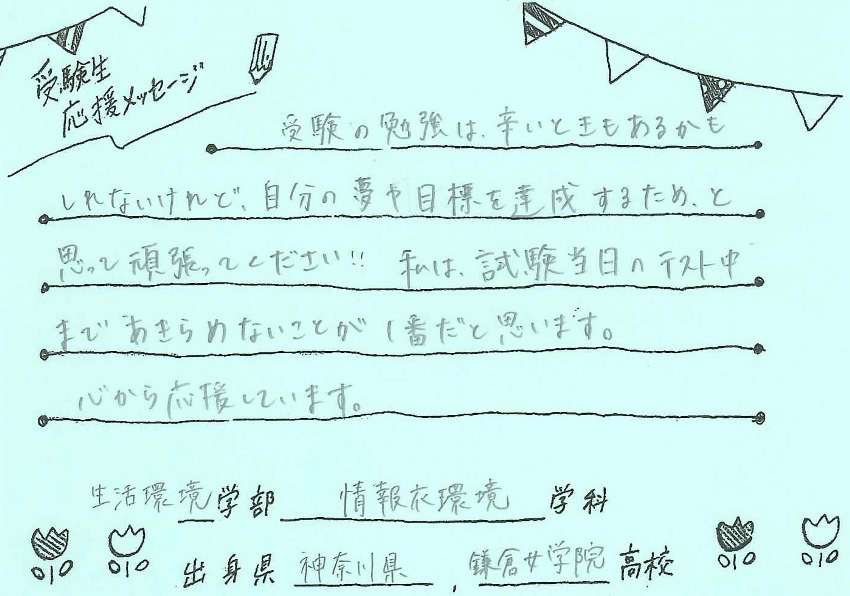 受験生
応援メッセージ
受験の勉強は、辛いときもあるかも
しれないけれど、自分の夢や目標を達成するため、と
思って頑張ってください!! 私は、試験当日のテスト中
まであきらめないことが1番だと思います。
心から応援しています。
生活環境学部 情報衣環境学科
出身県 神奈川県、鎌倉女学院高校